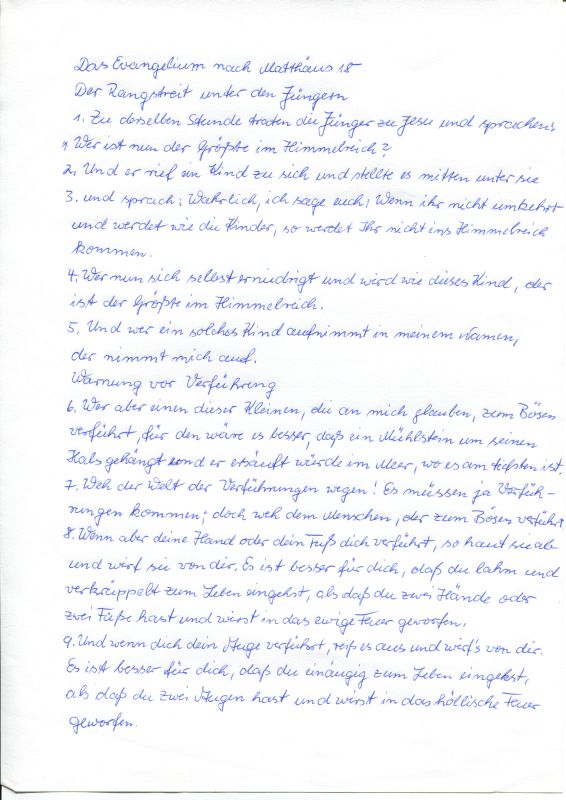 Das Evangelium nach Matthäus 18
Der Rangstreit unter den Jüngern
1. Zu derselben Stunde traten die Jünger zu Jesu und sprachen:
Wer ist nun der Größte im Himmelreich?
2. Und er rief ein Kind zu sich und stellte es mitten unter sie
3. und sprach: Wahrlich, ich sage euch: Wenn ihr nicht umkehrt
und werdet wie die Kinder, so werdet Ihr nicht ins Himmelreich
kommen.
4. Wer nun sich selbst erniedrigt und wird wie dieses Kind, der
ist der Größte im Himmelreich.
5. Und wer ein solches Kind aufnimmt in meinem Namen,
der nimmt mich auf.
Warnung vor Verführung
6. Wer aber einen dieser Kleinen, die an mich glauben, zum Bösen
verführt, für den wäre es besser, daß ein Mühlstein um seinen
Hals gehängt und er ersäuft würde im Meer, wo es am tiefsten ist.
7. Weh der Welt der Verführungen wegen! Es müssen ja Verfüh-
rungen kommen; doch weh dem Menschen, der zum Bösen verführt
8. Wenn aber deine Hand oder dein Fuß dich verführt, so haut sie ab
und wirf sie von dir. Es ist besser für dich, daß du lahm und
verkrüppelt zum Leben eingehst, als daß du zwei Hände oder
zwei Füße hast und wirst in das ewige Feuer geworfen.
9. Und wenn dich dein Auge verführt, reiß es aus und wirf's von dir.
Es ist besser für dich, daß du einäugig zum Leben eingehst,
als daß du zwei Augen hast und wirst in das höllische Feuer
geworfen.